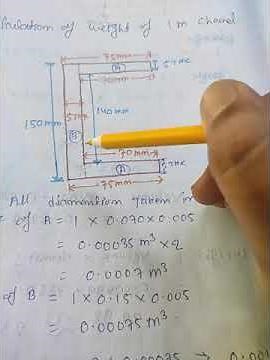 of weight of 1m channel
75mm
A
5mm
70mm
150mm
5mm
140mm
B
70mm
A
75mm
All dimension taken
of A = 1 x 0.070 x 0.005
= 0.00035 m³ x 2
= 0.0007 m³
of B = 1 x 0.15 x 0.005
= 0.00075 m³